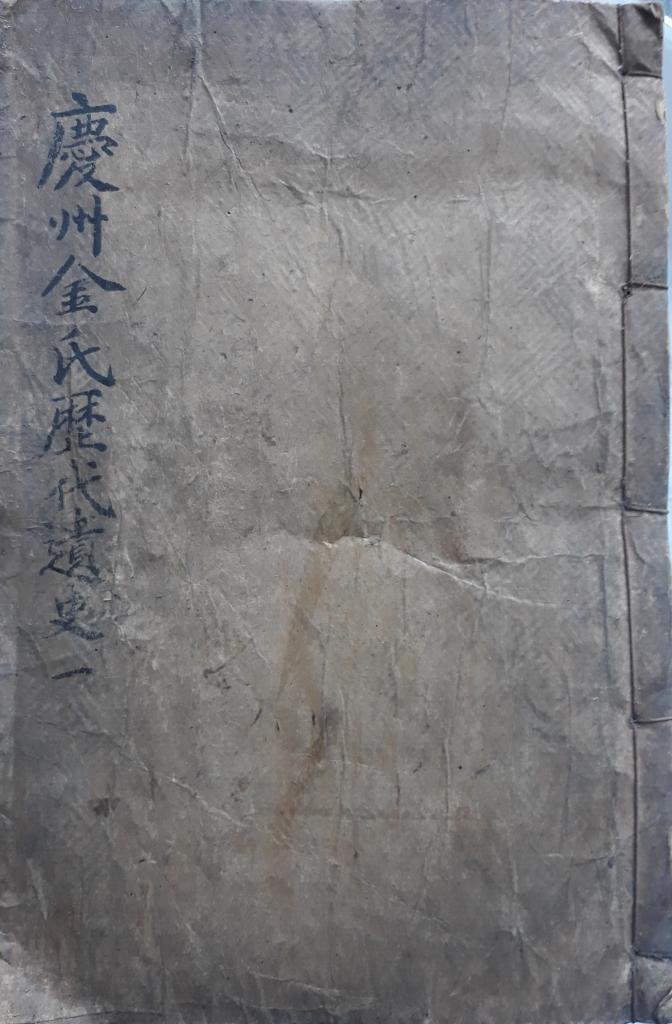 慶州金氏歷代遺史一